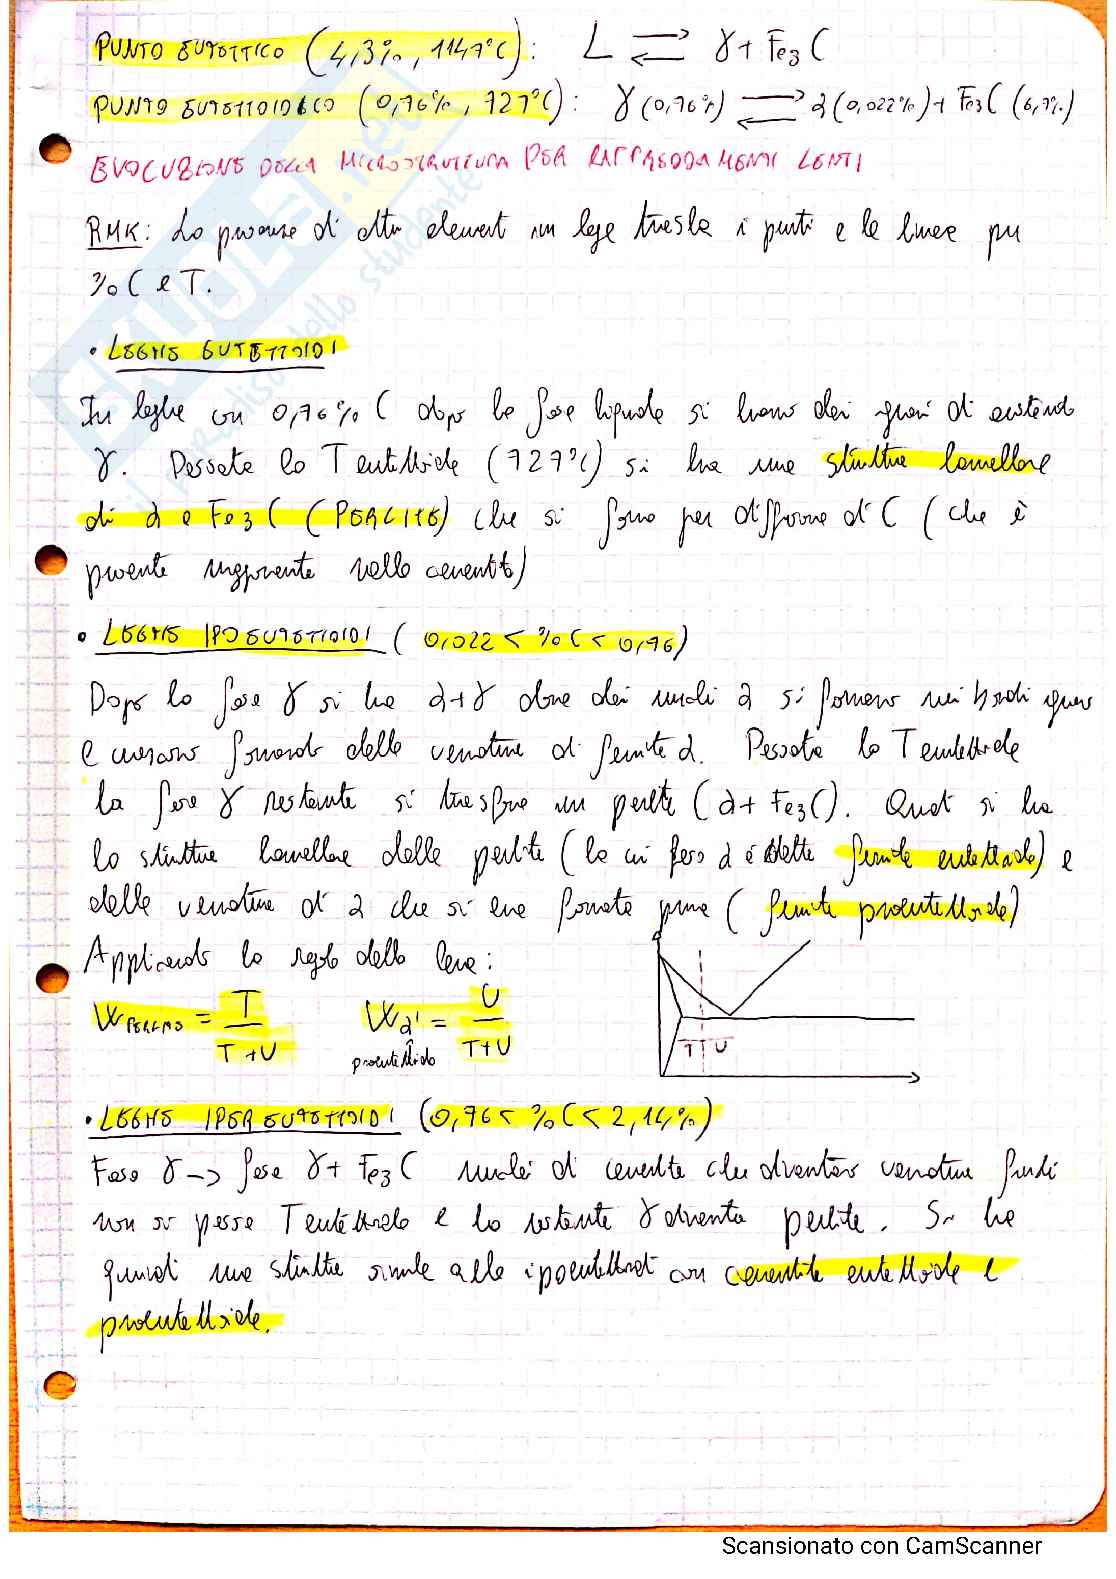 PUNTO EUTETTICO (4,3%, 1147°C): L ⇌ γ + Fe3C
PUNTO EUTETTOIDICO (0,76%, 727°C): γ(0,76%) ⇌ α(0,022%) + Fe3C (6,7%)
EVOLUZIONE DELLA MICROSTRUTTURA PER RAFFREDDAMENTI LENTI
RMK: La presenza di altri elementi in lega trasla i punti e le linee per
%C e T.
• LEGHE EUTETTOIDI
In leghe con 0,76% C dopo la fase liquida si hanno dei grani di austenite
γ. Passata la T eutettoide (727°C) si ha una struttura lamellare
di α e Fe3C (PERLITE) che si forma per diffusione di C (che è
presente maggiormente nella cementite)
• LEGHE IPOEUTETTOIDI (0,022 < %C < 0,76)
Dopo la fase γ si ha α+γ dove dei nuclei α si formano nei bordi grano
e crescono formando delle venature di ferrite α. Passata la T eutettoide
la fase γ restante si trasforma in perlite (α + Fe3C). Quindi si ha
la struttura lamellare della perlite (la cui fase α è detta ferrite eutettoide) e
delle venature di α che si era formata prima (ferrite proeutettoide)
Applicando la regola della leva:
W PERLITE = T / T+U W α' = U / T+U
proeutettoide
T U
• LEGHE IPEREUTETTOIDI (0,76 < %C < 2,14%)
Fase γ -> fase γ + Fe3C nuclei di cementite che diventano venature
non si passa T eutettoide e la restante γ diventa perlite. Si ha
quindi una struttura simile alle ipoeutettoidi con cementite eutettoide e
proeutettoide.
il paradiso dello studente
Scansionato con CamScanner